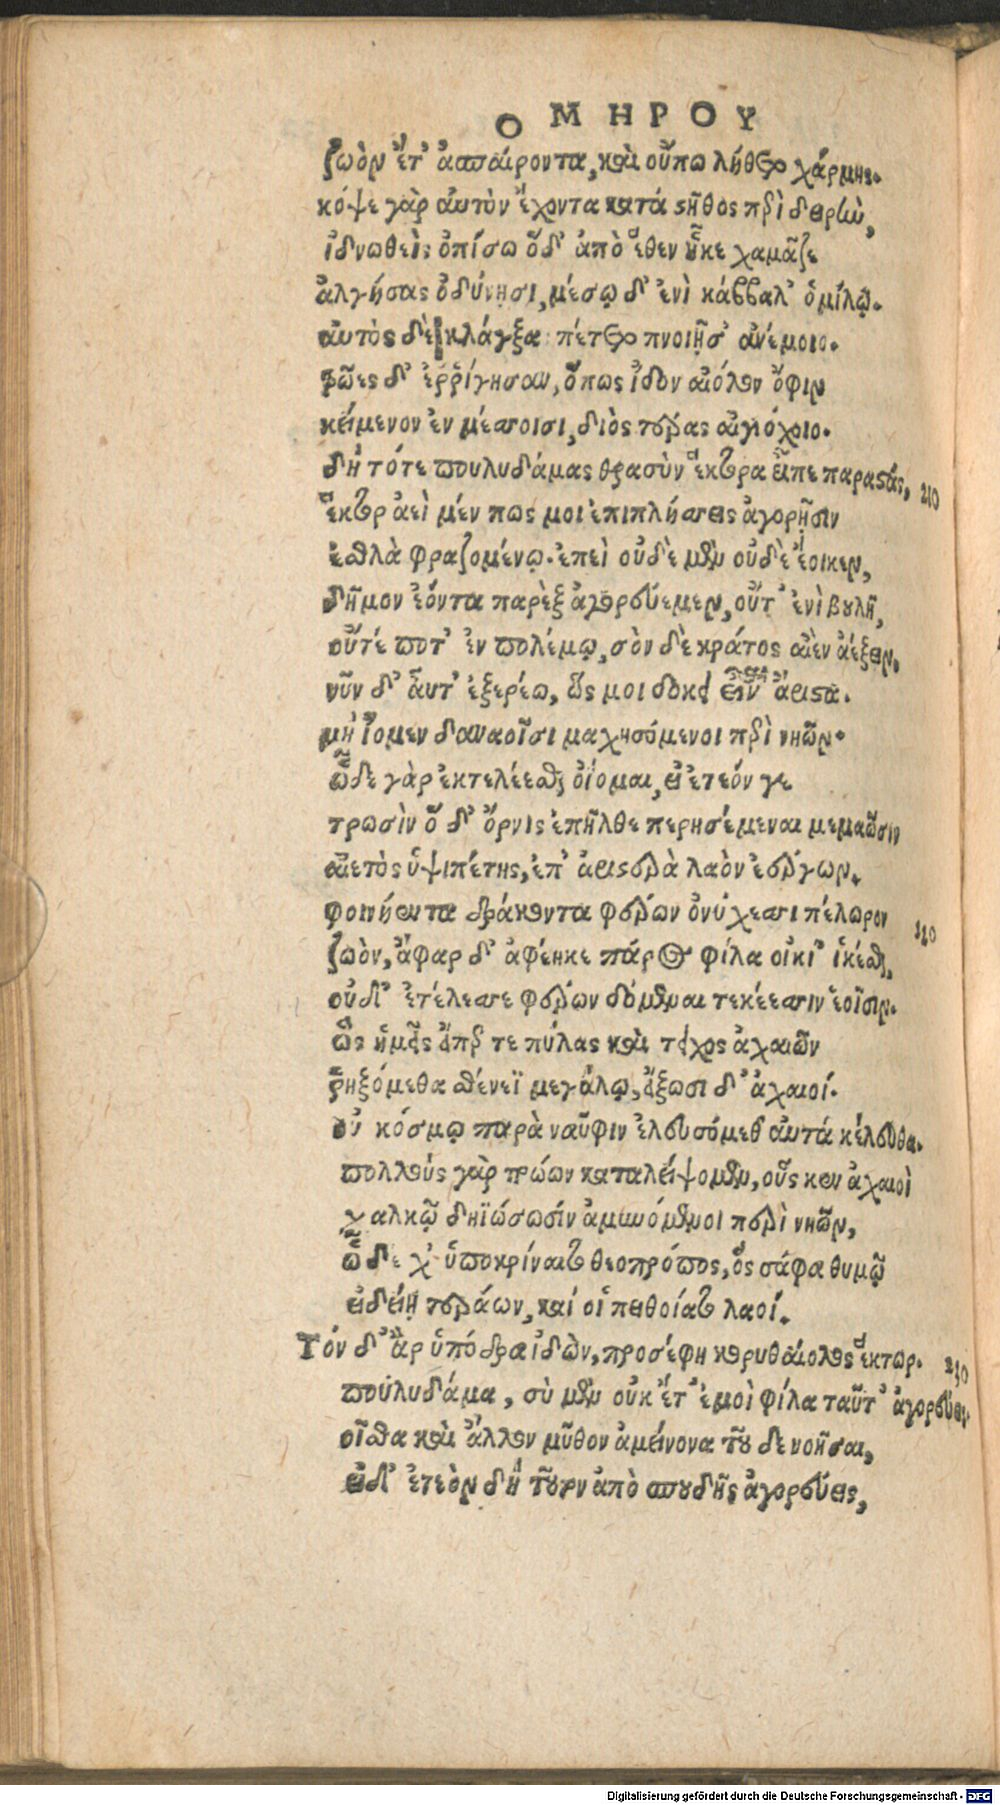 ΟΜΗΡΟΥ
ζωὸν ἔτ' ἀσπαίροντα, καὶ οὔπω λήθετο χάρμης.
κόψε γὰρ αὐτὸν ἔχοντα κατά στῆθος πρὶ δειρὼ,
ἰδνωθεὶς ὀπίσω ὅδ' ἀπὸ ἕθεν ἧκε χαμᾶζε
ἀλγήσας ὀδύνησι, μέσῳ δ' ἐνὶ κάββαλ' ὁμίλῳ.
αὐτὸς δὲ κλάγξα πέτετο πνοιῇσ' ἀνέμοιο.
τρῶες δ' ἐῤῥίγησαν, ὅπως ἴδον αἰόλον ὄφιν
κείμενον ἐν μέσσοισι, διὸς τέρας αἰγιόχοιο.
δὴ τότε πουλυδάμας θρασὺν ἕκτορα εἶπε παραστάς, 210
ἕκτορ ἀεὶ μέν πως μοι ἐπιπλήσσεις ἀγορῇσιν
ἐσθλὰ φραζομένῳ. ἐπεὶ οὐδὲ μὲν οὐδὲ ἔοικεν,
δῆμον ἐόντα παρὲξ ἀγορευέμεν, οὔτ' ἐνὶ βουλῇ,
οὔτέ ποτ' ἐν πολέμῳ, σὸν δὲ κράτος αἰὲν ἀέξειν.
νῦν δ' αὖτ' ἐξερέω, ὥς μοι δοκεῖ εἶναι ἄριστα.
μὴ ἴομεν δαναοῖσι μαχησόμενοι περὶ νηῶν.
ὧδε γὰρ ἐκτελέεσθαι ὀίομαι, εἰ ἐτεόν γε
τρωσὶν ὅ δ' ὄρνις ἐπῆλθε περησέμεναι μεμαῶσιν
αἰετὸς ὑψιπέτης, ἐπ' ἀριστερὰ λαὸν ἐέργων.
φοινήεντα δράκοντα φέρων ὀνύχεσσι πέλωρον 220
ζωὸν, ἄφαρ δ' ἀφέηκε πάρος φίλα οἰκί' ἱκέσθαι,
οὐδ' ἐτέλεσσε φέρων δόμεναι τεκέεσσιν ἑοῖσιν.
ὣς ἡμεῖς εἴπερ τε πύλας καὶ τεῖχος ἀχαιῶν
ῥηξόμεθα σθένεϊ μεγάλῳ, εἴξωσι δ' ἀχαιοί.
οὐ κόσμῳ παρὰ ναῦφιν ἐλευσόμεθ' αὐτά κέλευθα.
πολλοὺς γὰρ τρώων καταλείψομεν, οὓς κεν ἀχαιοὶ
χαλκῷ δηϊώσωσίν ἀμυνόμενοι περὶ νηῶν,
ὧδέ χ' ὑποκρίναιτο θεοπρόπος, ὃς σάφα θυμῷ
εἰδείη τεράων, καί οἱ πειθοίατο λαοί.
Τόν δ' ἂρ ὑπόδρα ἰδὼν, προσέφη κορυθαίολος ἕκτωρ. 230
πουλυδάμα, σὺ μὲν οὐκ ἔτ' ἐμοὶ φίλα ταῦτ' ἀγορεύεις
οἶσθα καὶ ἄλλον μῦθον ἀμείνονα τοῦ δε νοῆσαι,
εἰ δ' ἐτεὸν δή τοῦτον ἀπὸ σπουδῆς ἀγορεύεις,
Digitalisierung gefördert durch die Deutsche Forschungsgemeinschaft - DFG